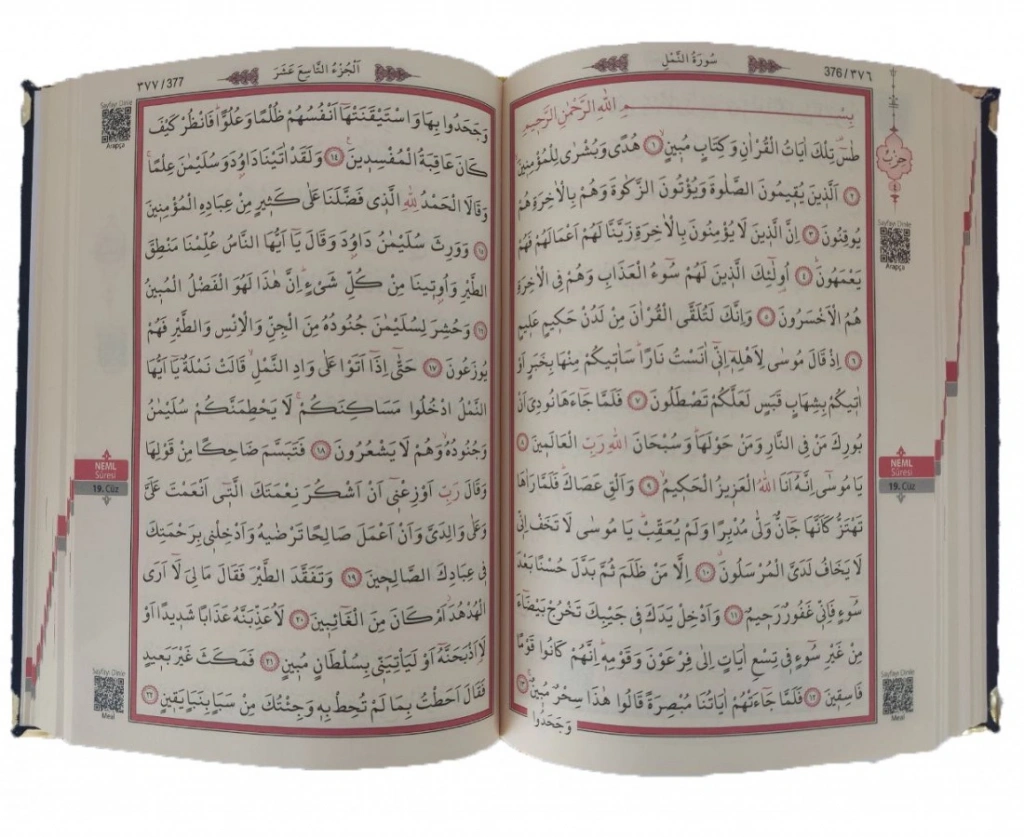 376/٣٧٦
سُورَةُ النَّمْلِ
بِسْــــــمِ اللهِ الرَّحْمٰنِ الرَّحٖيمِ
طٰسٓ تِلْكَ اٰيَاتُ الْقُرْاٰنِ وَكِتَابٍ مُبٖينٍ ١ هُدًى وَبُشْرٰى لِلْمُؤْمِنٖينَ
٢ اَلَّذٖينَ يُقٖيمُونَ الصَّلٰوةَ وَيُؤْتُونَ الزَّكٰوةَ وَهُمْ بِالْاٰخِرَةِ هُمْ
يُوقِنُونَ ٣ اِنَّ الَّذٖينَ لَا يُؤْمِنُونَ بِالْاٰخِرَةِ زَيَّنَّا لَهُمْ اَعْمَالَهُمْ فَهُمْ
يَعْمَهُونَ ٤ اُولٰٓئِكَ الَّذٖينَ لَهُمْ سُٓوءُ الْعَذَابِ وَهُمْ فِي الْاٰخِرَةِ
هُمُ الْاَخْسَرُونَ ٥ وَاِنَّكَ لَتُلَقَّى الْقُرْاٰنَ مِنْ لَدُنْ حَكٖيمٍ عَلٖيمٍ
٦ اِذْ قَالَ مُوسٰى لِاَهْلِهٖٓ اِنّٖٓي اٰنَسْتُ نَارًا سَاٰتٖيكُمْ مِنْهَا بِخَبَرٍ اَوْ
اٰتٖيكُمْ بِشِهَابٍ قَبَسٍ لَعَلَّكُمْ تَصْطَلُونَ ٧ فَلَمَّا جَٓاءَهَا نُودِيَ اَنْ
بُورِكَ مَنْ فِي النَّارِ وَمَنْ حَوْلَهَا وَسُبْحَانَ اللهِ رَبِّ الْعَالَمٖينَ ٨
يَا مُوسٰٓى اِنَّهُٓ اَنَا اللهُ الْعَزٖيزُ الْحَكٖيمُ ٩ وَاَلْقِ عَصَاكَ فَلَمَّا رَاٰهَا
تَهْتَزُّ كَاَنَّهَا جَٓانٌّ وَلّٰى مُدْبِرًا وَلَمْ يُعَقِّبْ يَا مُوسٰى لَا تَخَفْ اِنّٖي
لَا يَخَافُ لَدَيَّ الْمُرْسَلُونَ ١٠ اِلَّا مَنْ ظَلَمَ ثُمَّ بَدَّلَ حُسْنًا بَعْدَ
سُٓوءٍ فَاِنّٖي غَفُورٌ رَحٖيمٌ ١١ وَاَدْخِلْ يَدَكَ فٖي جَيْبِكَ تَخْرُجْ بَيْضَٓاءَ
مِنْ غَيْرِ سُٓوءٍ فٖي تِسْعِ اٰيَاتٍ اِلٰى فِرْعَوْنَ وَقَوْمِهٖ اِنَّهُمْ كَانُوا قَوْمًا
فَاسِقٖينَ ١٢ فَلَمَّا جَٓاءَتْهُمْ اٰيَاتُنَا مُبْصِرَةً قَالُوا هٰذَا سِحْرٌ مُبٖينٌ ١٣
وَجَحَدُوا
حزب
Sayfayı Dinle
Arapça
NEML
Sûresi
19. Cüz
Sayfayı Dinle
Meal
٣٧٧/377
اَلْجُزْءُ التَّاسِعَ عَشَرَ
وَجَحَدُوا بِهَا وَاسْتَيْقَنَتْهَٓا اَنْفُسُهُمْ ظُلْمًا وَعُلُوًّا فَانْظُرْ كَيْفَ
كَانَ عَاقِبَةُ الْمُفْسِدٖينَ ١٤ وَلَقَدْ اٰتَيْنَا دَاوُدَ وَسُلَيْمٰنَ عِلْمًا
وَقَالَا الْحَمْدُ لِلّٰهِ الَّذٖي فَضَّلَنَا عَلٰى كَثٖيرٍ مِنْ عِبَادِهِ الْمُؤْمِنٖينَ
١٥ وَوَرِثَ سُلَيْمٰنُ دَاوُدَ وَقَالَ يَٓا اَيُّهَا النَّاسُ عُلِّمْنَا مَنْطِقَ
الطَّيْرِ وَاُوتٖينَا مِنْ كُلِّ شَيْءٍ اِنَّ هٰذَا لَهُوَ الْفَضْلُ الْمُبٖينُ
١٦ وَحُشِرَ لِسُلَيْمٰنَ جُنُودُهُ مِنَ الْجِنِّ وَالْاِنْسِ وَالطَّيْرِ فَهُمْ
يُوزَعُونَ ١٧ حَتّٰٓى اِذَٓا اَتَوْا عَلٰى وَادِ النَّمْلِ قَالَتْ نَمْلَةٌ يَٓا اَيُّهَا
النَّمْلُ ادْخُلُوا مَسَاكِنَكُمْ لَا يَحْطِمَنَّكُمْ سُلَيْمٰنُ
وَجُنُودُهُ وَهُمْ لَا يَشْعُرُونَ ١٨ فَتَبَسَّمَ ضَاحِكًا مِنْ قَوْلِهَا
وَقَالَ رَبِّ اَوْزِعْنٖٓي اَنْ اَشْكُرَ نِعْمَتَكَ الَّتٖٓي اَنْعَمْتَ عَلَيَّ
وَعَلٰى وَالِدَيَّ وَاَنْ اَعْمَلَ صَالِحًا تَرْضٰيهُ وَاَدْخِلْنٖي بِرَحْمَتِكَ
فٖي عِبَادِكَ الصَّالِحٖينَ ١٩ وَتَفَقَّدَ الطَّيْرَ فَقَالَ مَا لِيَ لَٓا اَرَى
الْهُدْهُدَ اَمْ كَانَ مِنَ الْغَٓائِبٖينَ ٢٠ لَاُعَذِّبَنَّهُ عَذَابًا شَدٖيدًا اَوْ
لَاَا۬ذْبَحَنَّهُٓ اَوْ لَيَأْتِيَنّٖي بِسُلْطَانٍ مُبٖينٍ ٢١ فَمَكَثَ غَيْرَ بَعٖيدٍ
فَقَالَ اَحَطْتُ بِمَا لَمْ تُحِطْ بِهٖ وَجِئْتُكَ مِنْ سَبَاٍ بِنَبَاٍ يَقٖينٍ ٢٢
Sayfayı Dinle
Arapça
NEML
Sûresi
19. Cüz
Sayfayı Dinle
Meal